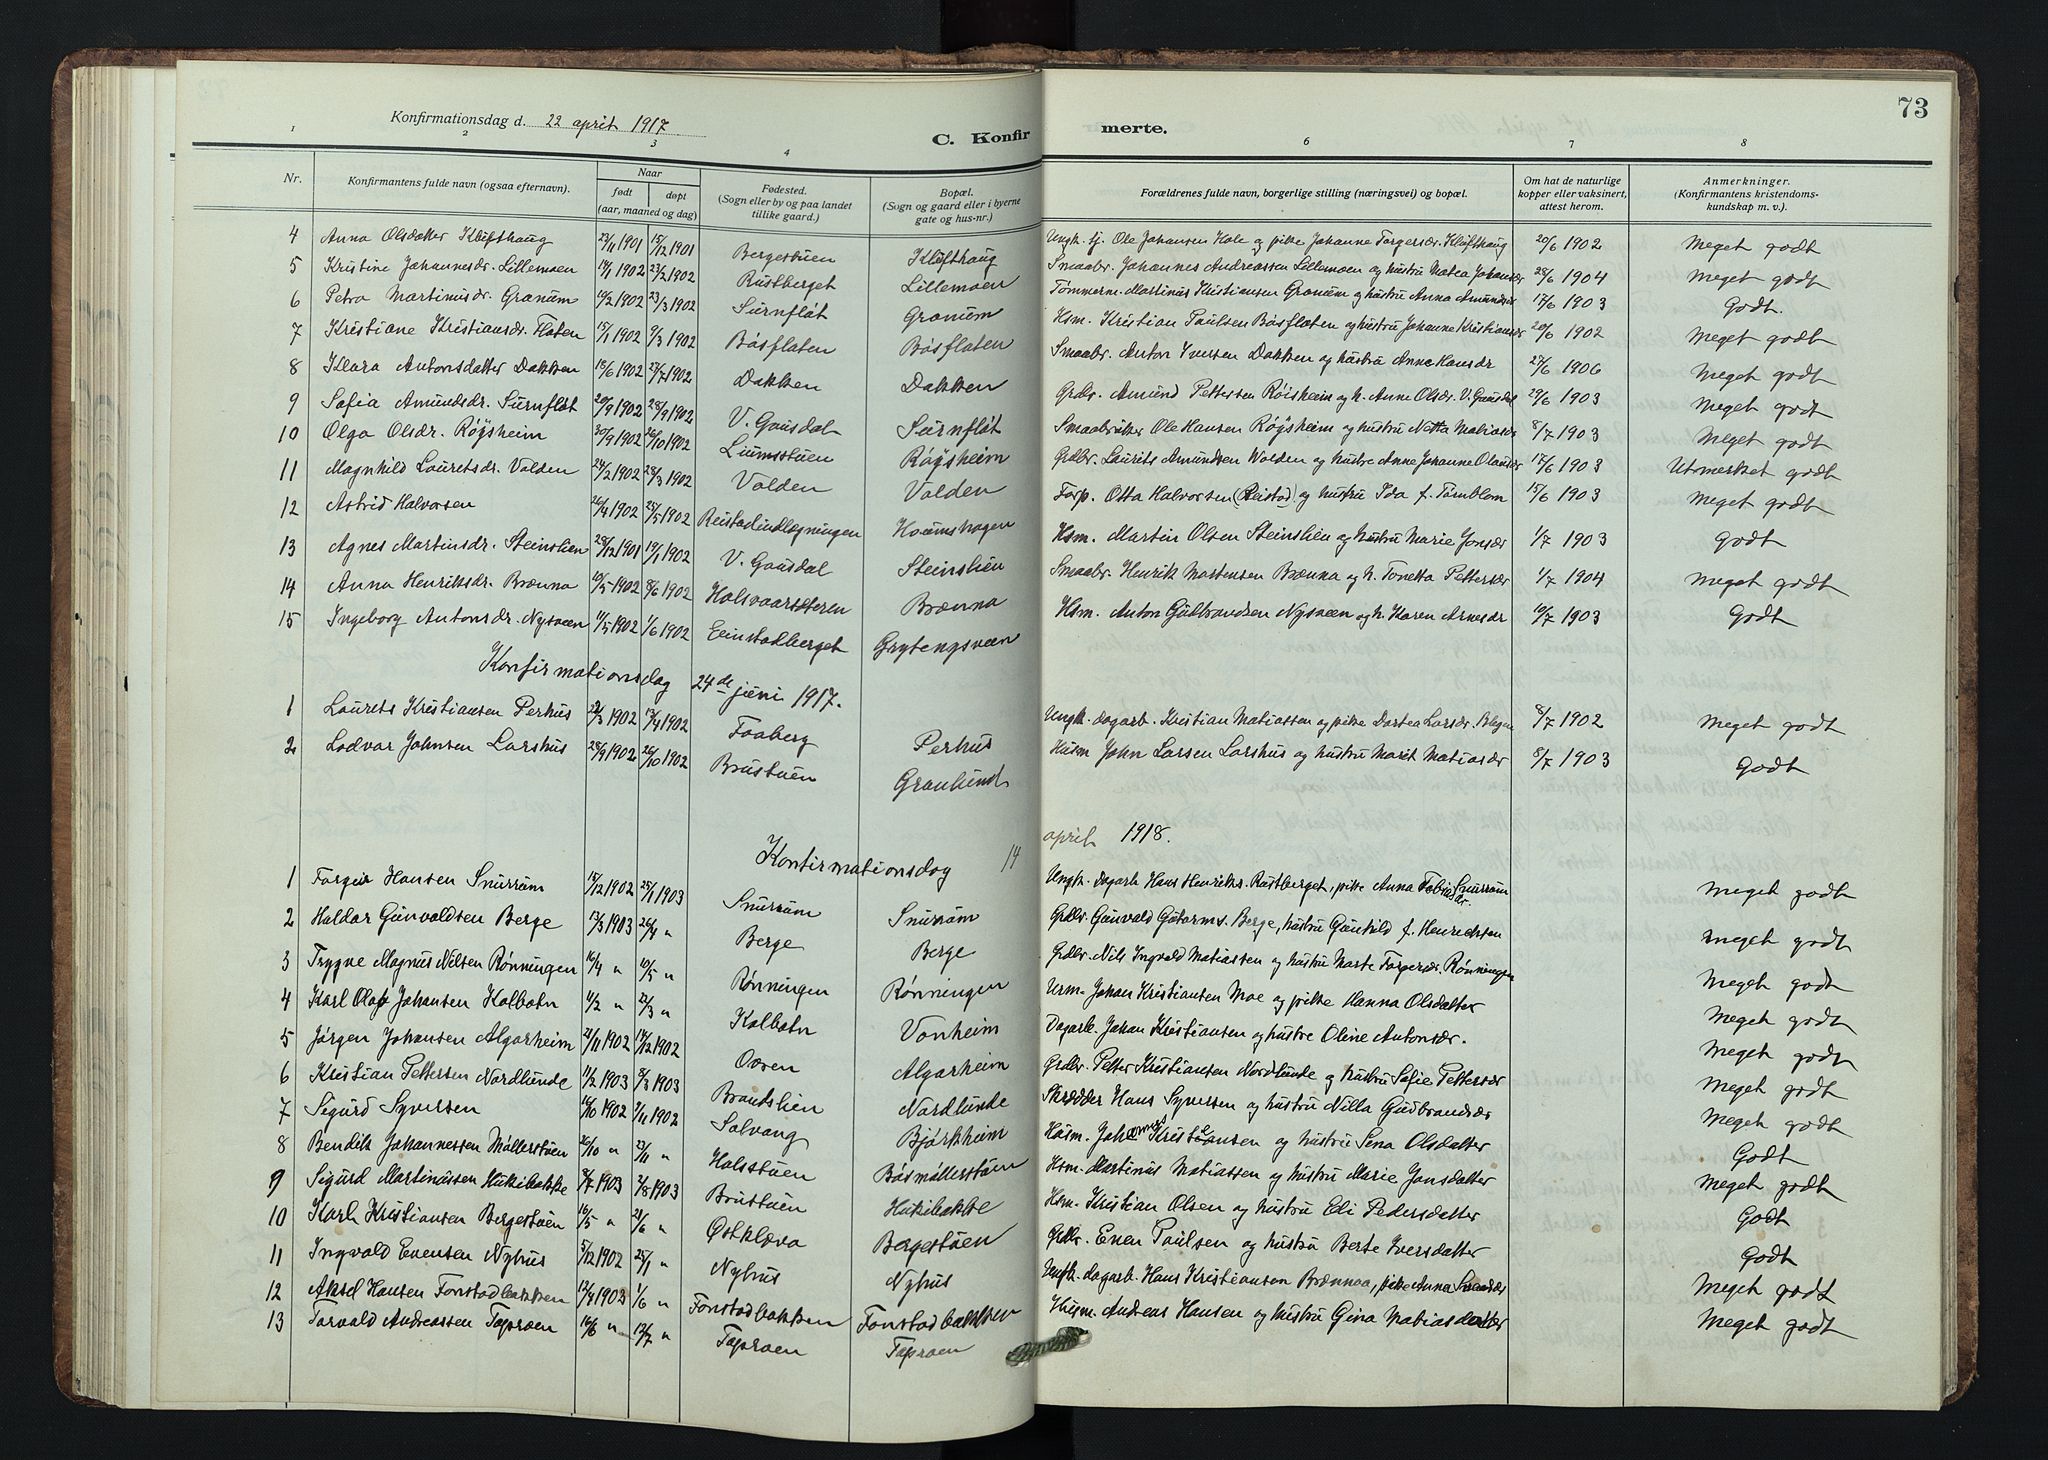 73
Konfirmationsdag d. 22 april 1917
C. Konfirmerte.
1 2 3 4 6 7 8
Nr. Konfirmantens fulde navn (ogsaa efternavn). Naar født døpt (aar, maaned og dag) Fødested. (Sogn eller by og paa landet tillike gaard.) Bopæl. (Sogn og gaard eller i byerne gate og hus-nr.) Forældrenes fulde navn, borgerlige stilling (næringsvei) og bopæl. Om hat de naturlige kopper eller vaksinert, attest herom. Anmerkninger. (Konfirmantens kristendoms-kundskap m. v.)
4 Anna Olsdatter Klufthaug 23/11 1901 15/12 1901 Bergestuen Klufthaug Ungk. tj. Ole Johansen Hole og pike Johanne Torgersdr. Klufthaug 20/6 1902 Meget godt
5 Kristine Johannesdr. Lillemoen 14/1 1902 23/2 1902 Rustberget Lillemoen Smaabr. Johannes Andreassen Lillemoen og hustru Matea Johansdr 28/6 1904 Meget godt
6 Petra Martinusdr. Granum 19/2 1902 23/3 1902 Surnfløt Granum Tømmerm. Martinus Kristiansen Granum og hustru Anna Amundsdr 17/6 1903 Godt.
7 Kristiane Kristiansdr. Flaten 15/1 1902 9/3 1902 Bøsflaten Bøsflaten Hsm. Kristian Paulsen Bøsflaten og hustru Johanne Kristiansdr 20/6 1902 Meget godt
8 Klara Antonsdatter Dakken 15/6 1902 27/7 1902 Dakken Dakken Smaabr. Anton Iversen Dakken og hustru Anne Hansdr 27/6 1906 Meget godt
9 Sofia Amundsdr. Surnfløt 20/9 1902 28/9 1902 V. Gausdal Surnfløt Grdbr. Amund Pettersen Røisheim og h. Anne Olsdr. V. Gausdal 29/6 1903 Meget godt
10 Olga Olsdr. Røysheim 30/9 1902 26/10 1902 Liumsstuen Røysheim Smaabruker Ole Hansen Røysheim og hustru Netta Matiasdr 8/7 1903 Meget godt
11 Magnhild Lauretsdr. Volden 24/2 1902 28/3 1902 Volden Volden Grdbr. Laurits Amundsen Wolden og hustru Anne Johanne Olausdr 17/6 1903 Utmerket godt
12 Astrid Halvorsen 26/4 1902 25/5 1902 Reistadindlægningen Houmshagen Forp. Otta Halvorsen (Reistad) og hustru Ida f. Törnblom 15/6 1903 Meget godt
13 Agnes Martinsdr. Steinslien 28/12 1901 19/1 1902 V. Gausdal Steinslien Hsm. Martin Olsen Steinslien og hustru Marie Jonsdr 1/7 1903 Godt
14 Anna Henriksdr. Brænna 10/5 1902 8/6 1902 Holsvaarsæteren Brænna Smaabr. Henrik Mortensen Brænna og h. Tonetta Pettersdr 1/7 1904 Meget godt
15 Ingeborg Antonsdr. Nysveen 11/5 1902 1/6 1902 Einstadberget Grytengsveen Hsm. Anton Gudbrandsen Nysveen og h. Karen Arnesdr 10/7 1903 Godt
Konfirmationsdag 24de juni 1917.
1 Laurets Kristiansen Perhus 22/3 1902 13/4 1902 Faaberg Perhus Ungk. dagarb. Kristian Matiassen og pike Dortea Larsdr. Blegen 8/7 1902 Meget godt
2 Lodvar Johnsen Larshus 28/9 1902 26/10 1902 Brustuen Graulund Husm John Larsen Larshus og hustru Marit Matiasdr 8/7 1903 Godt
Konfirmationsdag 14 april 1918.
1 Torgeir Hansen Snurrum 15/12 1902 25/1 1903 Snurrum Snurrum Ungk. Dagarb Hans Henriks. Rustberget, pike Anna Tobiasdr. Snurrum Meget godt
2 Haldor Gunvaldsen Berge 13/3 1903 26/4 " Berge Berge Grdbr. Gunvald Gutorms. Berge, hustru Gunhild f. Henrichsen meget godt
3 Trygve Magnus Nilsen Rønningen 16/4 " 10/5 " Rønningen Rønningen Grdbr. Nils Ingvald Matiassen og hustru Marte Torgersdr. Rønningen Meget godt
4 Karl Olaf Johansen Kolbotn 11/2 " 22/3 " Kolbotn Vonheim Urm. Johan Kristiansen Moe og pike Hanna Olsdatter Meget godt
5 Jørgen Johansen Algarheim 21/11 1902 14/12 1902 Ooren Algarheim Dagarb. Johan Kristiansen og hustru Oline Antonsdr. Meget godt
6 Kristian Pettersen Nordlunde 11/2 1903 8/3 1903 Brandslien Nordlunde Grdbr. Petter Kristiansen Nordlunde og hustru Sofie Pettersdr Meget godt
7 Sigurd Syversen 16/10 1902 9/11 1902 Solvang Bjørkheim Skrædder Hans Syversen og hustru Nilla Gudbrandsdr Meget godt
8 Bendik Johannessen Møllerstuen 26/10 " 23/11 " Holstuen Bøsmøllerstuen Husm. Johannes Kristiansen og hustru Sena Olsdatter Godt
9 Sigurd Martinussen Hukibakke 8/7 1903 2/8 1903 Brustuen Hukibakke Hsm. Martinus Matiassen og hustru Marie Jonsdatter Meget godt
10 Karl Kristiansen Bergestuen 16/5 " 21/6 " Østkleva Bergestuen Hsm. Kristian Olsen og hustru Eli Pedersdatter Godt
11 Ingvald Evensen Nyhus 5/12 1902 25/1 " Nyhus Nyhus Grdbr. Even Paulsen og hustru Berte Iversdatter Godt
12 Aksel Hansen Fonstadbakken 13/4 1903 1/6 " Fonstadbakken Fonstadbakken Ungk. dagarb. Hans Kristiansen Brænnoa, pike Anna Meget godt
13 Torvald Andreassen Toproen 16/6 " 12/7 " Toproen Toproen Husm. Andreas Hansen og hustru Gina Matiasdatter Meget godt